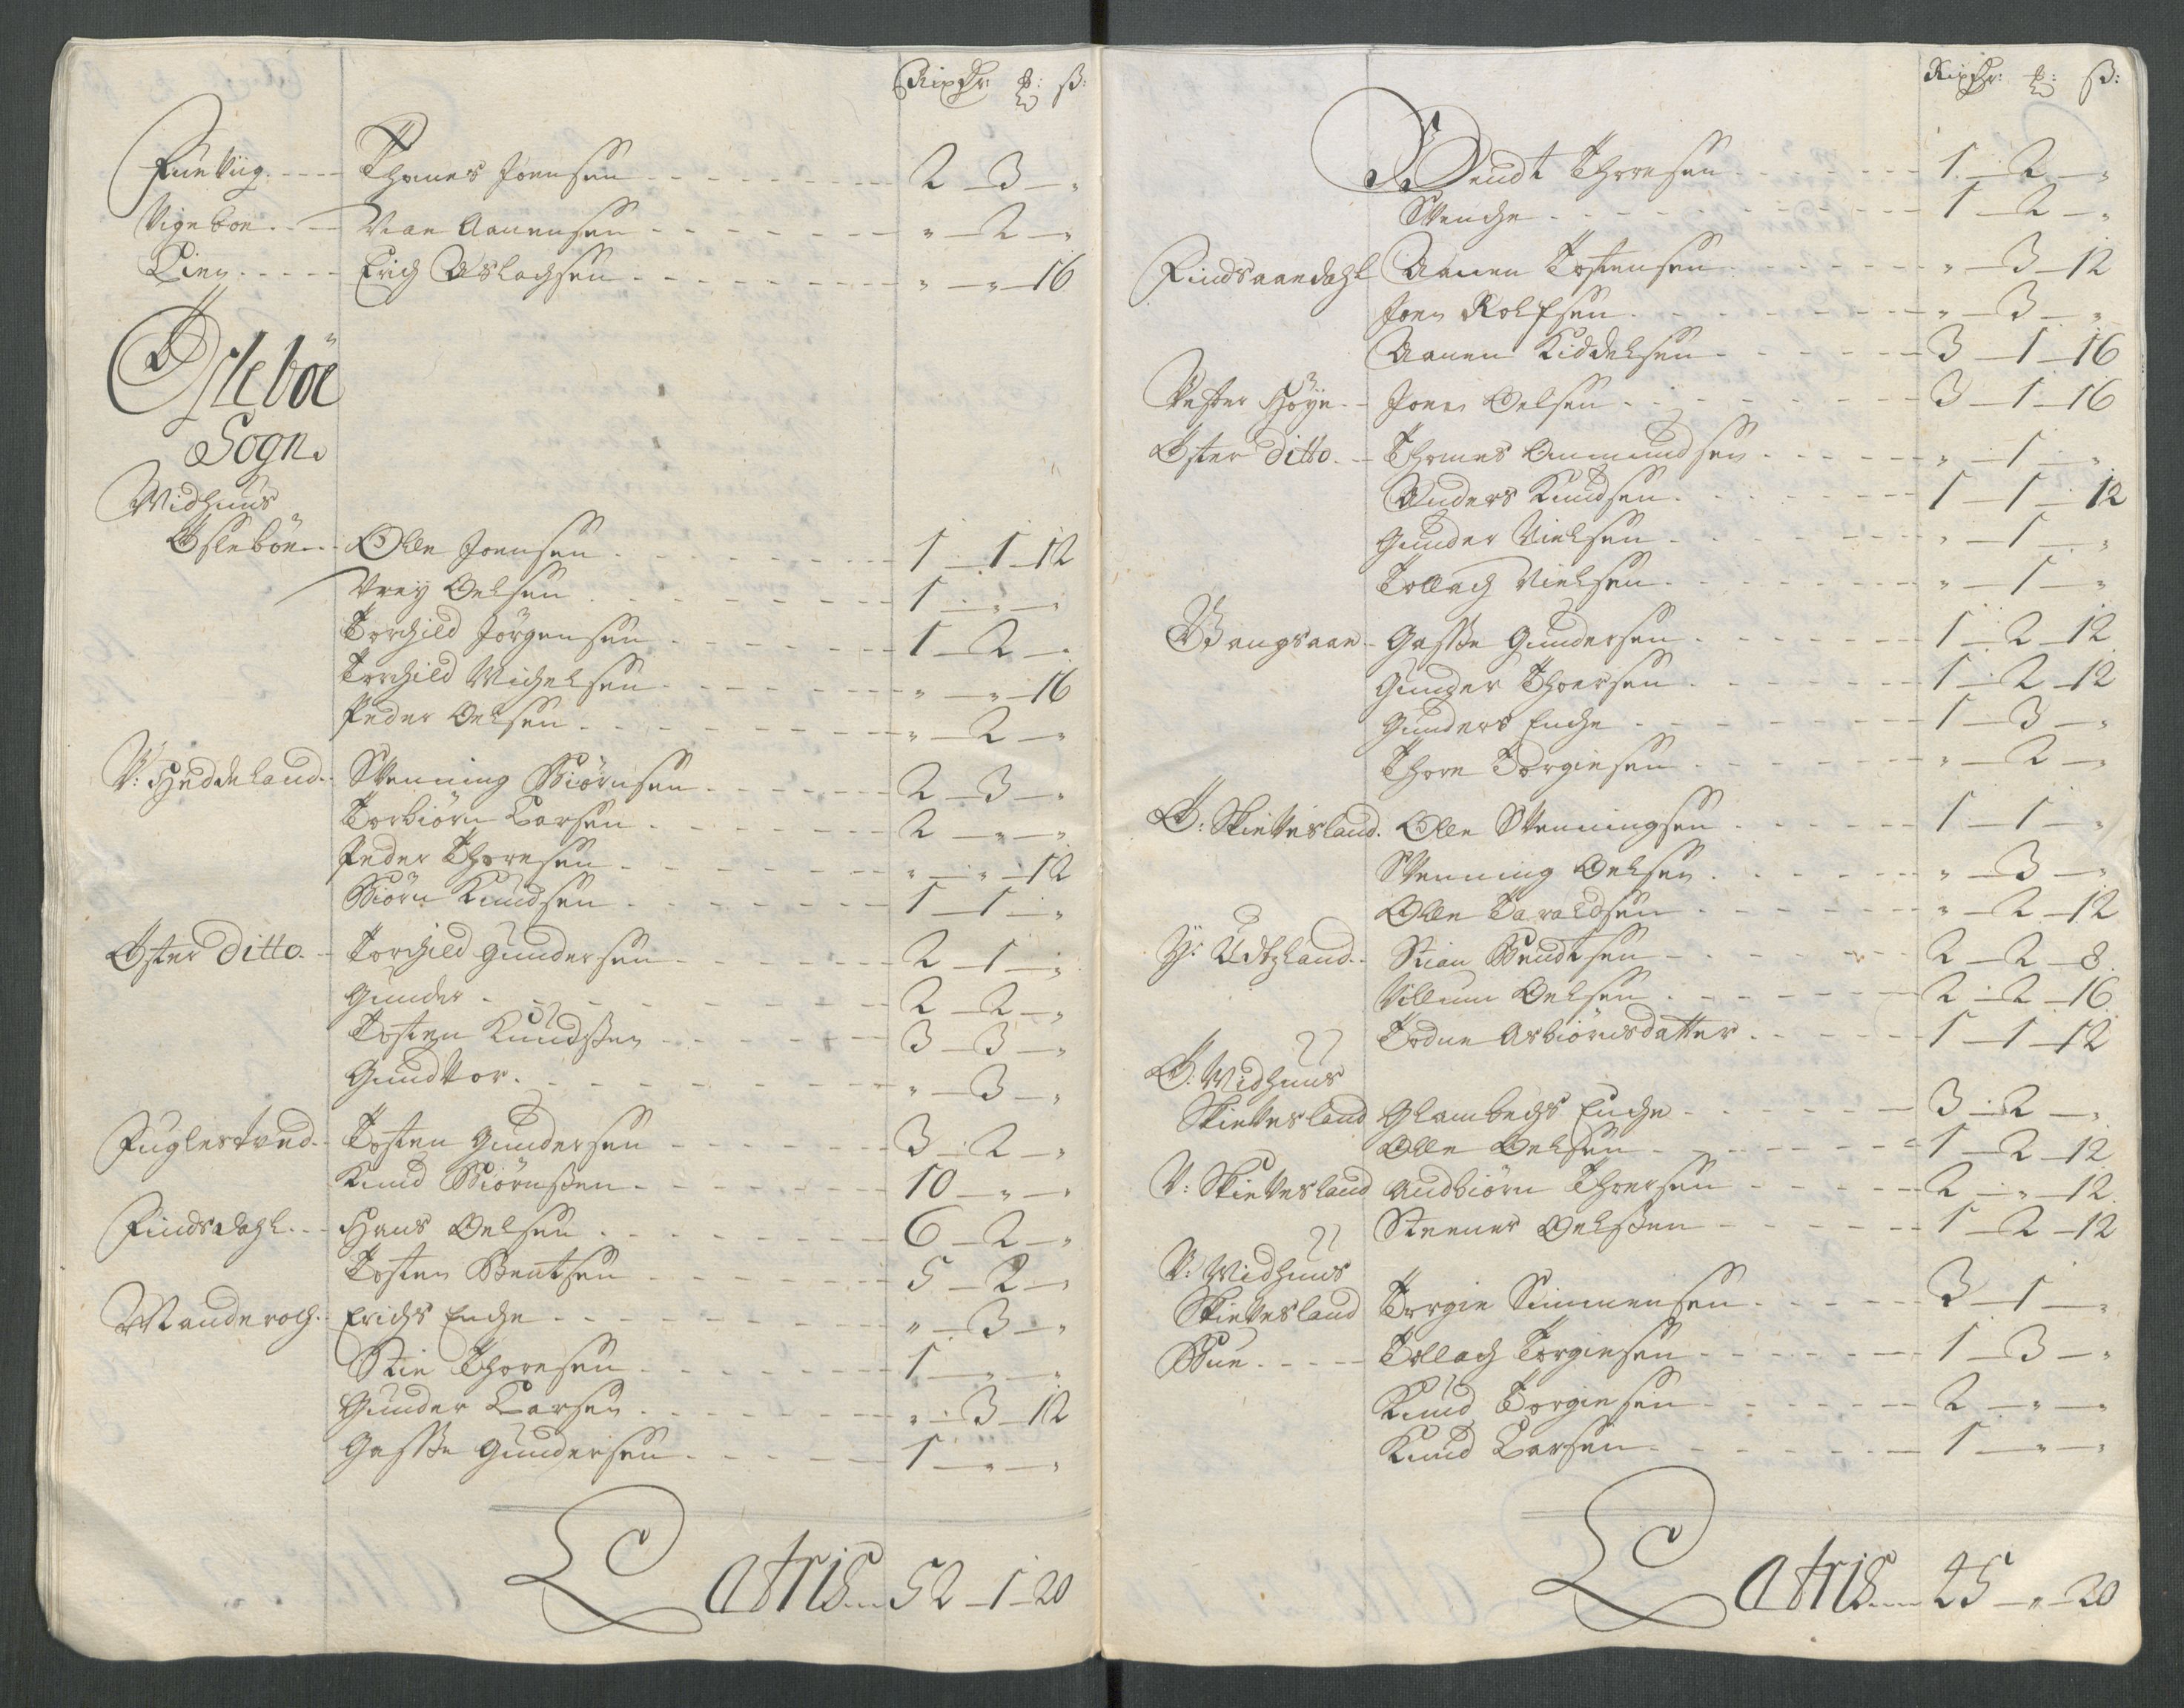 Rixdr: ℔: ß:
Fueviig Thomes Joensen 2 – 3 – „
Vigeboe Aanensen „ – 2 – „
Lien Erich Aslachsen „ – „ – 16
Øslebøe
Sogn.
Midhuus
Øslebøe Olle Joensen 1 – 1 – 12
Oelsen 1 – „ – „
Torchild Jørgensen 1 – 2 – „
Torchild Michelsen „ – „ – 16
Peder Oelsen „ – 2 – „
V: Heddeland Svenning Biørnsen 2 – 3 – „
Torbiørn Larsen 2 – „ – „
Peder Thoresen „ – „ – 12
Biørn Knudsen 1 – 1 – „
Øster Ditto Torchild Gundersen 2 – 1 – „
Gunder 2 – 2 – „
Tosten Knudsen 3 – 3 – „
Gundvor „ – 3 – „
Fuglestved Tosten Gundersen 3 – 2 – „
Knud Biørnsen 10 – „ – „
Findsdahl Hans Oelsen 6 – 2 – „
Tosten Bentsen 5 – 2 – „
Manderoch Erichs Enche „ – 3 – „
Stie Thoresen 1 – „ – „
Gunder Larsen „ – 3 – 12
Gasse Gundersen 1 – „ – „
Latris 52 – 1 – 20
Rixdr: ℔: ß:
Bendt Thoresen 1 – 2 – „
Svenche 1 – 2 – „
Findsaandahl Aanen Tostensen „ – 3 – 12
Joen Rolfsen „ – 3 – „
Aanen Kiddelsen 3 – 1 – 16
Vester Høye Joen Oelsen 3 – 1 – 16
Øster Ditto Thomes Ommundsen „ – 1 – „
Anders Knudsen 1 – 1 – 12
Gunder Nielsen „ – 1 – „
Tollach Nielsen „ – 1 – „
Bangsaae Gasse Gundersen 1 – 2 – 12
Gunder Thoersen 1 – 2 – 12
Gunders Enche 1 – 3 – „
Thore Torgiesen „ – 2 – „
Ø: Skievesland Olle Svenningsen 1 – 1 – „
Svenning Oelsen „ – 3 – „
Olle Taraldsen „ – 2 – 12
Y: Udtzland Stian Bendtsen 2 – 2 – 8
Villum Oelsen 2 – 2 – 16
Todne Asbiørnsdatter 1 – 1 – 12
Ø: Midhuus
Skievesland Glambechs Enche 3 – 2 – „
Olle Oelsen 1 – 2 – 12
V: Skievesland Audbiørn Thoersen 2 – „ – 12
Steener Oelsen 1 – 2 – 12
V: Midhuus
Skievesland Torgie Simmensen 3 – 1 – „
Bue Tollach Torgiesen 1 – 3 – „
Knud Torgiesen 2 – „ – „
Knud Larsen 1 – „ – „
Latris 45 – „ – 20